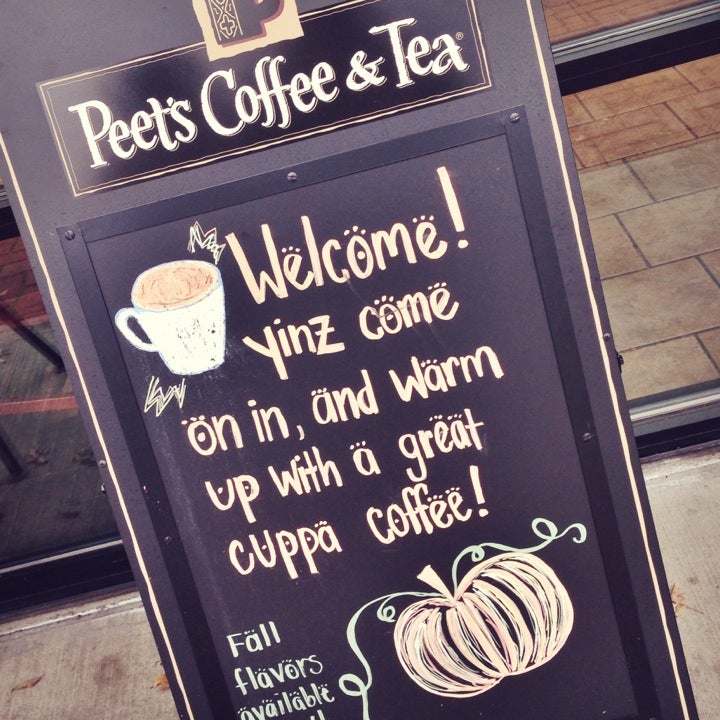 Peet's Coffee & Tea®
Welcome!
yinz come
on in, and warm
up with a great
cuppa coffee!
Fall
flavors
available